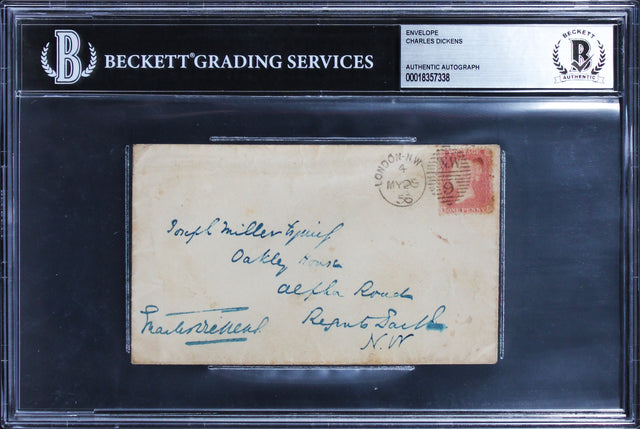 B
BECKETT® GRADING SERVICES
ENVELOPE
CHARLES DICKENS
AUTHENTIC AUTOGRAPH
00018357338
BECKETT
B
AUTHENTIC
LONDON-NW
4
MY 26
56
NW
9
ONE PENNY
Joseph Miller Esquire
Oakley House
Alpha Road
Regents Park
N.W
Charles Dickens